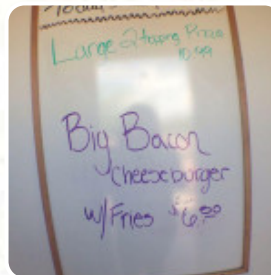 Large 2 topping Pizza
10.99
Big Bacon
Cheeseburger
w/Fries $6.00